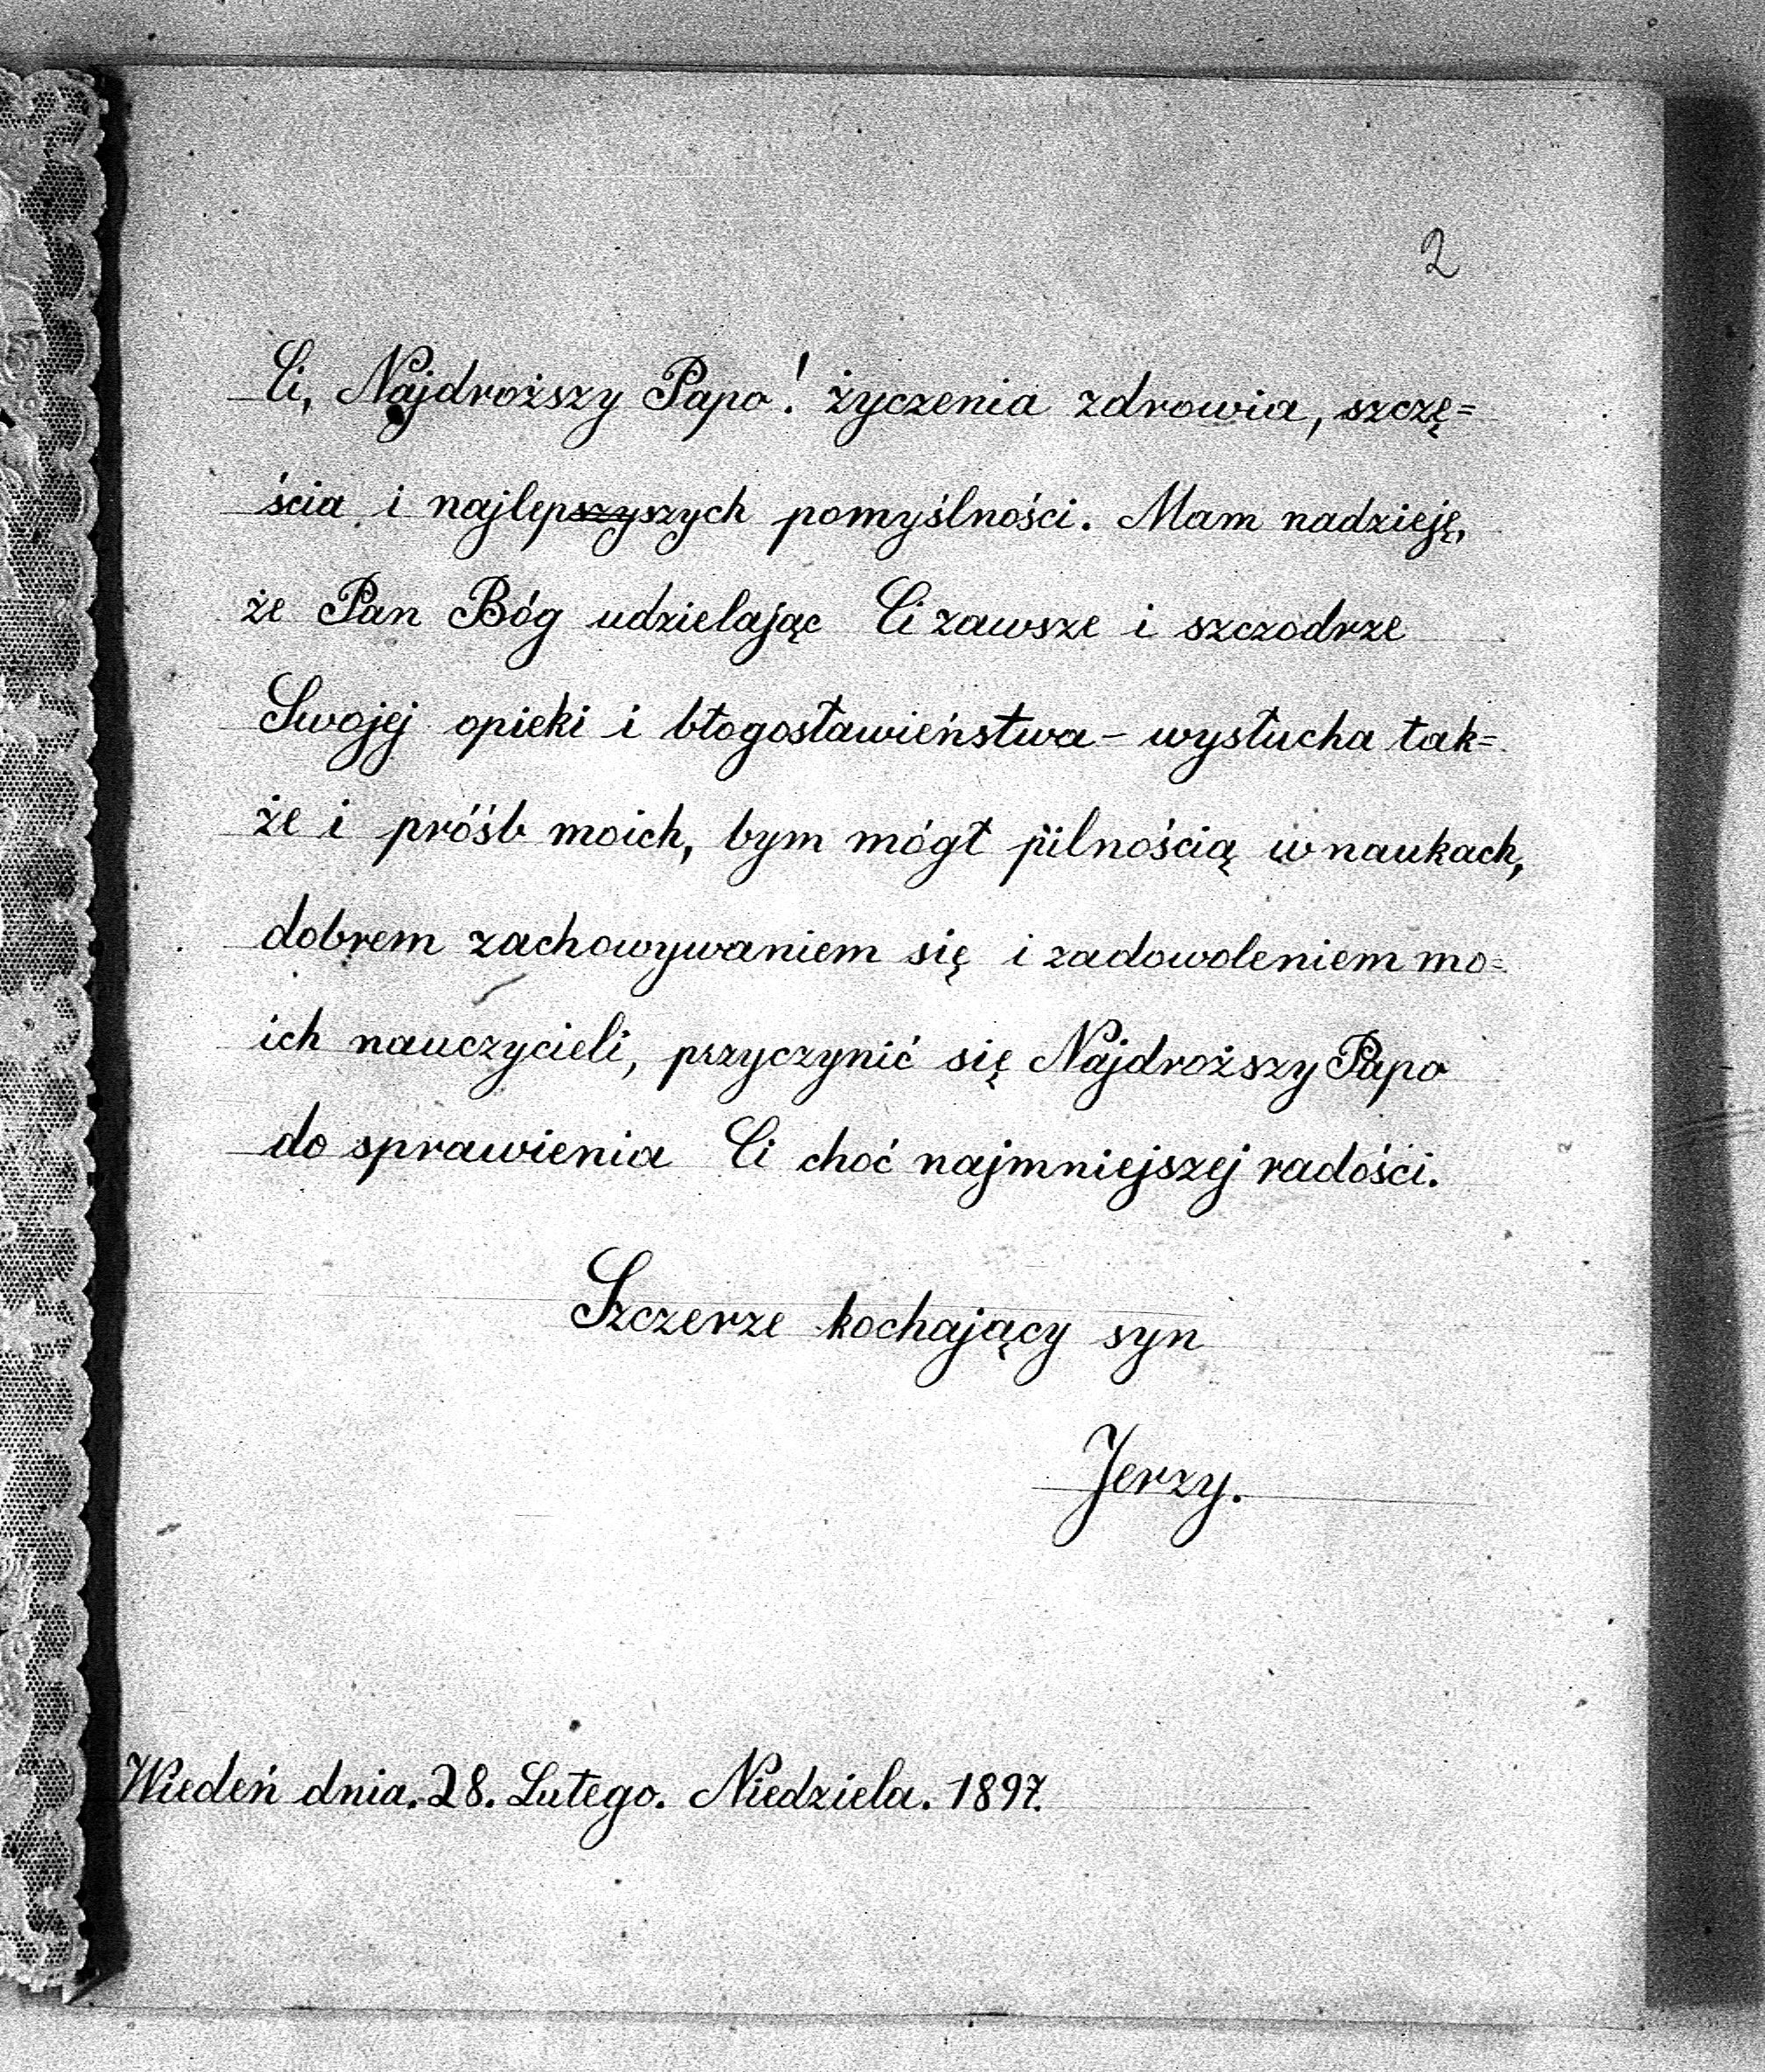 2
Ci, Najdroższy Papo! życzenia zdrowia, szczę=
ścia i najlepszyszych pomyślności. Mam nadzieję,
że Pan Bóg udzielając Ci zawsze i szczodrze
Swojej opieki i błogosławieństwa - wysłucha tak=
że i próśb moich, bym mógł pilnością w naukach,
dobrem zachowywaniem się i zadowoleniem mo=
ich nauczycieli, przyczynić się Najdroższy Papo
do sprawienia Ci choć najmniejszej radości.
Szczerze kochający syn
Jerzy.
Wiedeń dnia. 28. Lutego. Niedziela. 1897.